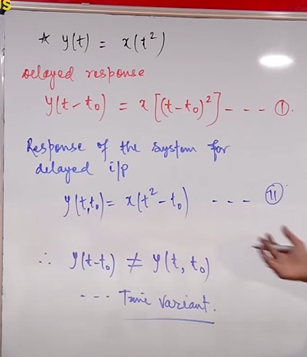 S
* y(t) = x(t²)
Delayed response
y(t-t₀) = x[(t-t₀)²] --- ①
Response of the system for
delayed i/p
y(t,t₀) = x(t²-t₀) --- ⑪
∴ y(t-t₀) ≠ y(t,t₀)
--- Time Variant.